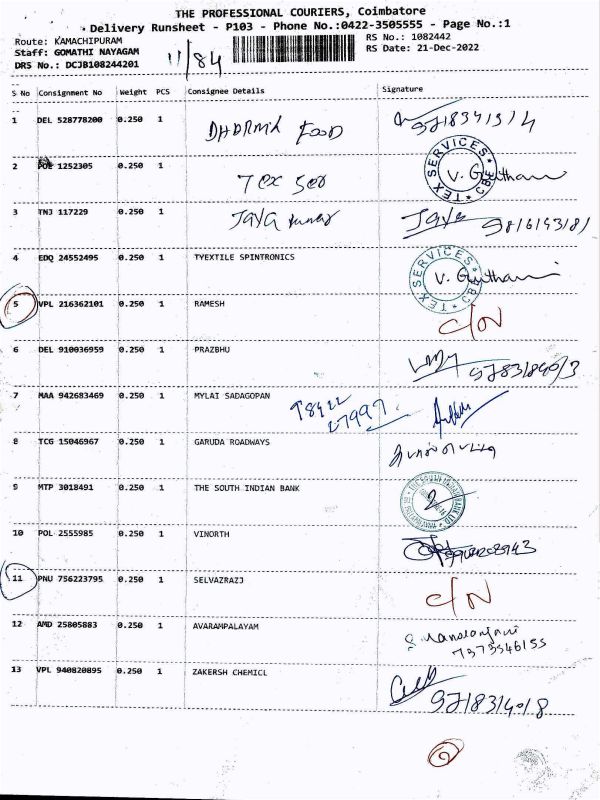 THE PROFESSIONAL COURIERS, Coimbatore
Delivery Runsheet - P103 - Phone No.:0422-3505555 - Page No.:1
Route: KAMACHIPURAM
RS No.: 1082442
Staff: GOMATHI NAYAGAM
RS Date: 21-Dec-2022
DRS No.: DCJB108244201
11/84
S No Consignment No Weight PCS Consignee Details Signature
1 DEL 528778200 0.250 1 DHARMA FOOD
2 POL 1252305 0.250 1 Tex Ser
TEX SERVICES CBE
3 TNJ 117229 0.250 1 Jaya Kumar Jaya
4 EDQ 24552495 0.250 1 TYEXTILE SPINTRONICS
TEX SERVICES CBE
5 VPL 216362101 0.250 1 RAMESH C/N
6 DEL 910036959 0.250 1 PRAZBHU
7 MAA 942683469 0.250 1 MYLAI SADAGOPAN 98422 27997
8 TCG 15046967 0.250 1 GARUDA ROADWAYS
9 MTP 3018491 0.250 1 THE SOUTH INDIAN BANK
10 POL 2555985 0.250 1 VINORTH
11 PNU 756223795 0.250 1 SELVAZRAZJ C/N
12 AMD 25805883 0.250 1 AVARAMPALAYAM
7373546155
13 VPL 940820895 0.250 1 ZAKERSH CHEMICL
2